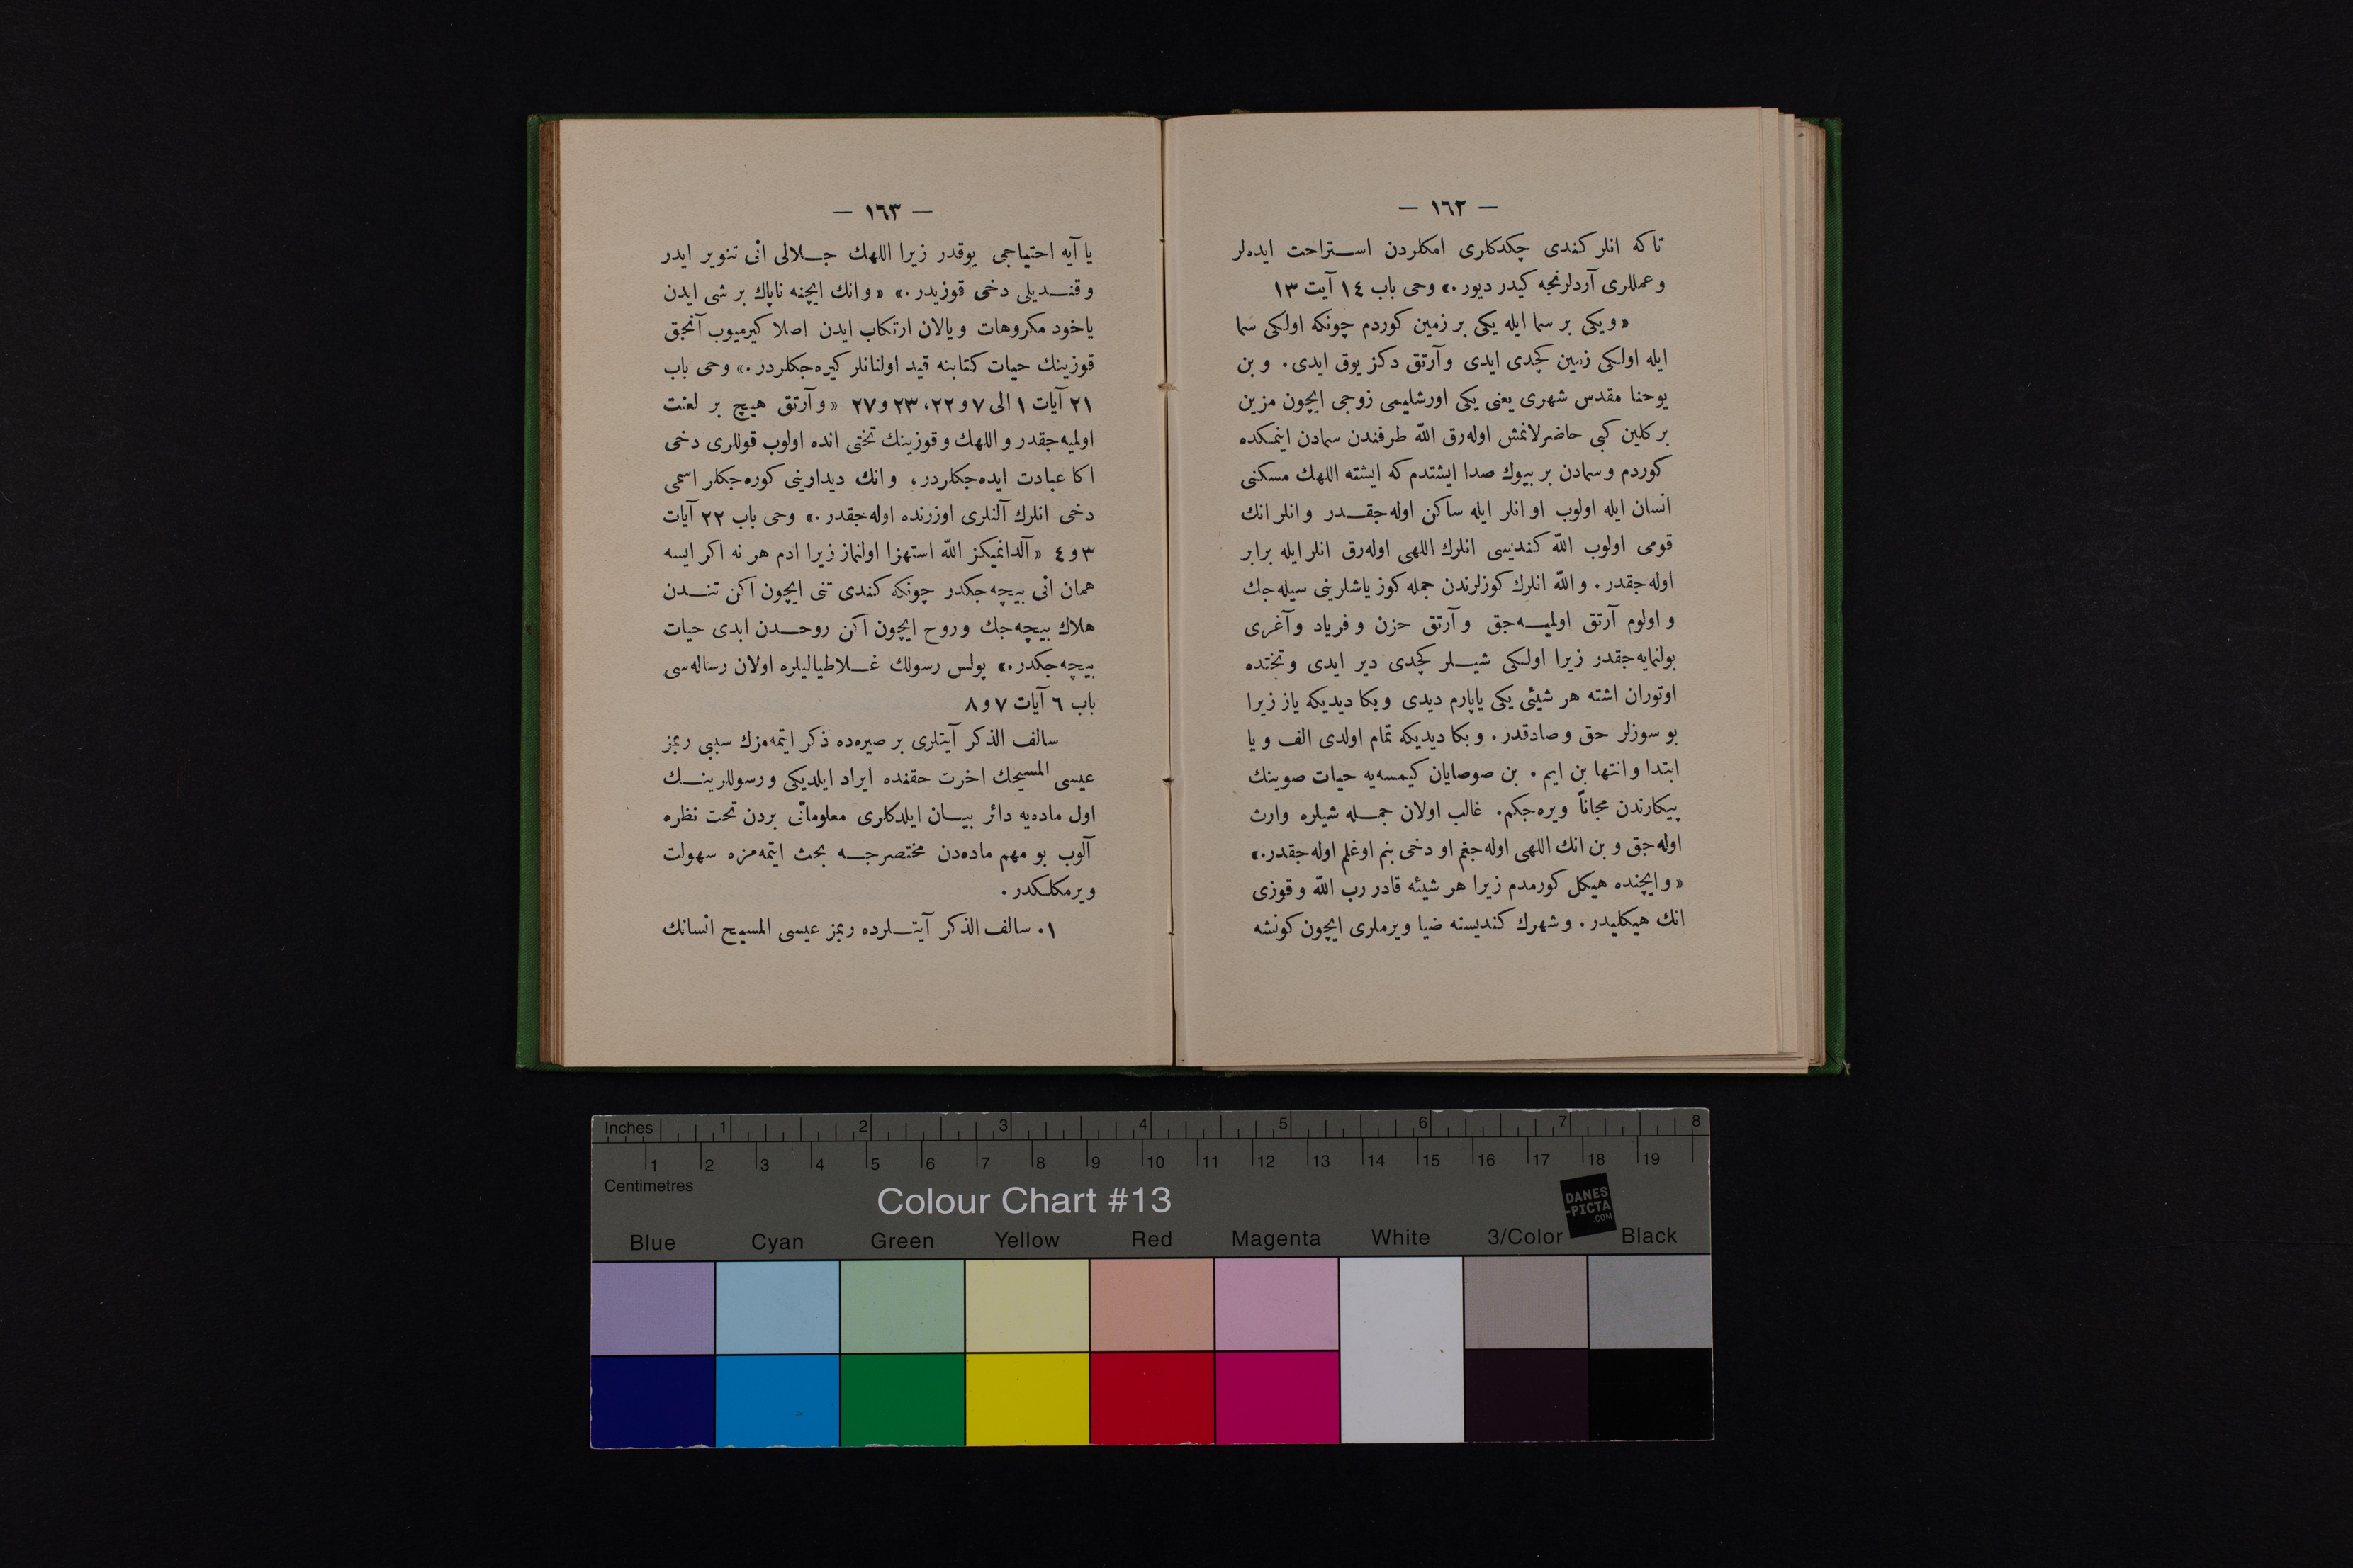 — ١٦٢ —
تاكه انلر كندى چكدكلرى امكلردن استراحت ايدەلر
وعمللرى آردلرنجه كيدر ديور.» وحى باب ١٤ آيت ١٣
«ويكى بر سما ايله يكى بر زمين كوردم چونكه اولكى سما
ايله اولكى زمين كچدى ايدى وآرتق دكز يوق ايدى. وبن
يوحنا مقدس شهرى يعنى يكى اورشليمى زوجى ايچون مزين
بر كلين كبى حاضرلانمش اولەرق اللّه طرفندن سمادن اينمكده
كوردم وسمادن بر بيوك صدا ايشتدم كه ايشته اللهك مسكنى
انسان ايله اولوب او انلر ايله ساكن اولەجقدر وانلر انك
قومى اولوب اللّه كنديسى انلرك اللهى اولەرق انلر ايله برابر
اولەجقدر. واللّه انلرك كوزلرندن جمله كوز ياشلرينى سيلەجك
واولوم آرتق اولميەجق وآرتق حزن وفرياد وآغرى
بولنمايەجقدر زيرا اولكى شيلر كچدى دير ايدى وتختده
اوتوران اشته هر شيئى يكى ياپارم ديدى وبكا ديديكه ياز زيرا
بو سوزلر حق وصادقدر. وبكا ديديكه تمام اولدى الف ويا
ابتدا وانتها بن ايم. بن صوصايان كيمسەيه حيات صوينك
پيكارندن مجاناً ويرەجكم. غالب اولان جمله شيلره وارث
اولەجق وبن انك اللهى اولەجغم او دخى بنم اوغلم اولەجقدر.»
«وايچنده هيكل كورمدم زيرا هر شيئه قادر رب اللّه وقوزى
انك هيكليدر. وشهرك كنديسنه ضيا ويرملرى ايچون كونشه
— ١٦٣ —
يا آيه احتياجى يوقدر زيرا اللهك جلالى انى تنوير ايدر
وقنديلى دخى قوزيدر.» «وانك ايچنه ناپاك بر شى ايدن
ياخود مكروهات ويالان ارتكاب ايدن اصلا كيرميوب آنجق
قوزينك حيات كتابنه قيد اولنانلر كيرەجكلردر.» وحى باب
٢١ آيات ١ الى ٧ و٢٢، ٢٣ و٢٧ «وآرتق هيچ بر لعنت
اولميەجقدر واللهك وقوزينك تختى انده اولوب قوللرى دخى
اكا عبادت ايدەجكلردر، وانك ديداوينى كورەجكلر اسمى
دخى انلرك آلنلرى اوزرنده اولەجقدر.» وحى باب ٢٢ آيات
٣ و٤ «آلدانميكز اللّه استهزا اولنماز زيرا ادم هر نه اكر ايسه
همان انى بيچەجكدر چونكه كندى تنى ايچون اكن تندن
هلاك بيچەجك وروح ايچون اكن روحدن ابدى حيات
بيچەجكدر.» پولس رسولك غلاطياليلره اولان رسالەسى
باب ٦ آيات ٧ و٨
سالف الذكر آيتلرى بر صيرەده ذكر ايتمەمزك سببى ربمز
عيسى المسيحك اخرت حقنده ايراد ايلديكى ورسوللرينك
اول مادەيه دائر بيان ايلدكلرى معلوماتى بردن تحت نظره
آلوب بو مهم مادەدن مختصرجه بحث ايتمەمزه سهولت
ويرمكلكدر.
١. سالف الذكر آيتلرده ربمز عيسى المسيح انسانك
Inches 1 2 3 4 5 6 7 8
1 2 3 4 5 6 7 8 9 10 11 12 13 14 15 16 17 18 19
Centimetres
Colour Chart #13
DANES
-PICTA
.COM
Blue Cyan Green Yellow Red Magenta White 3/Color Black